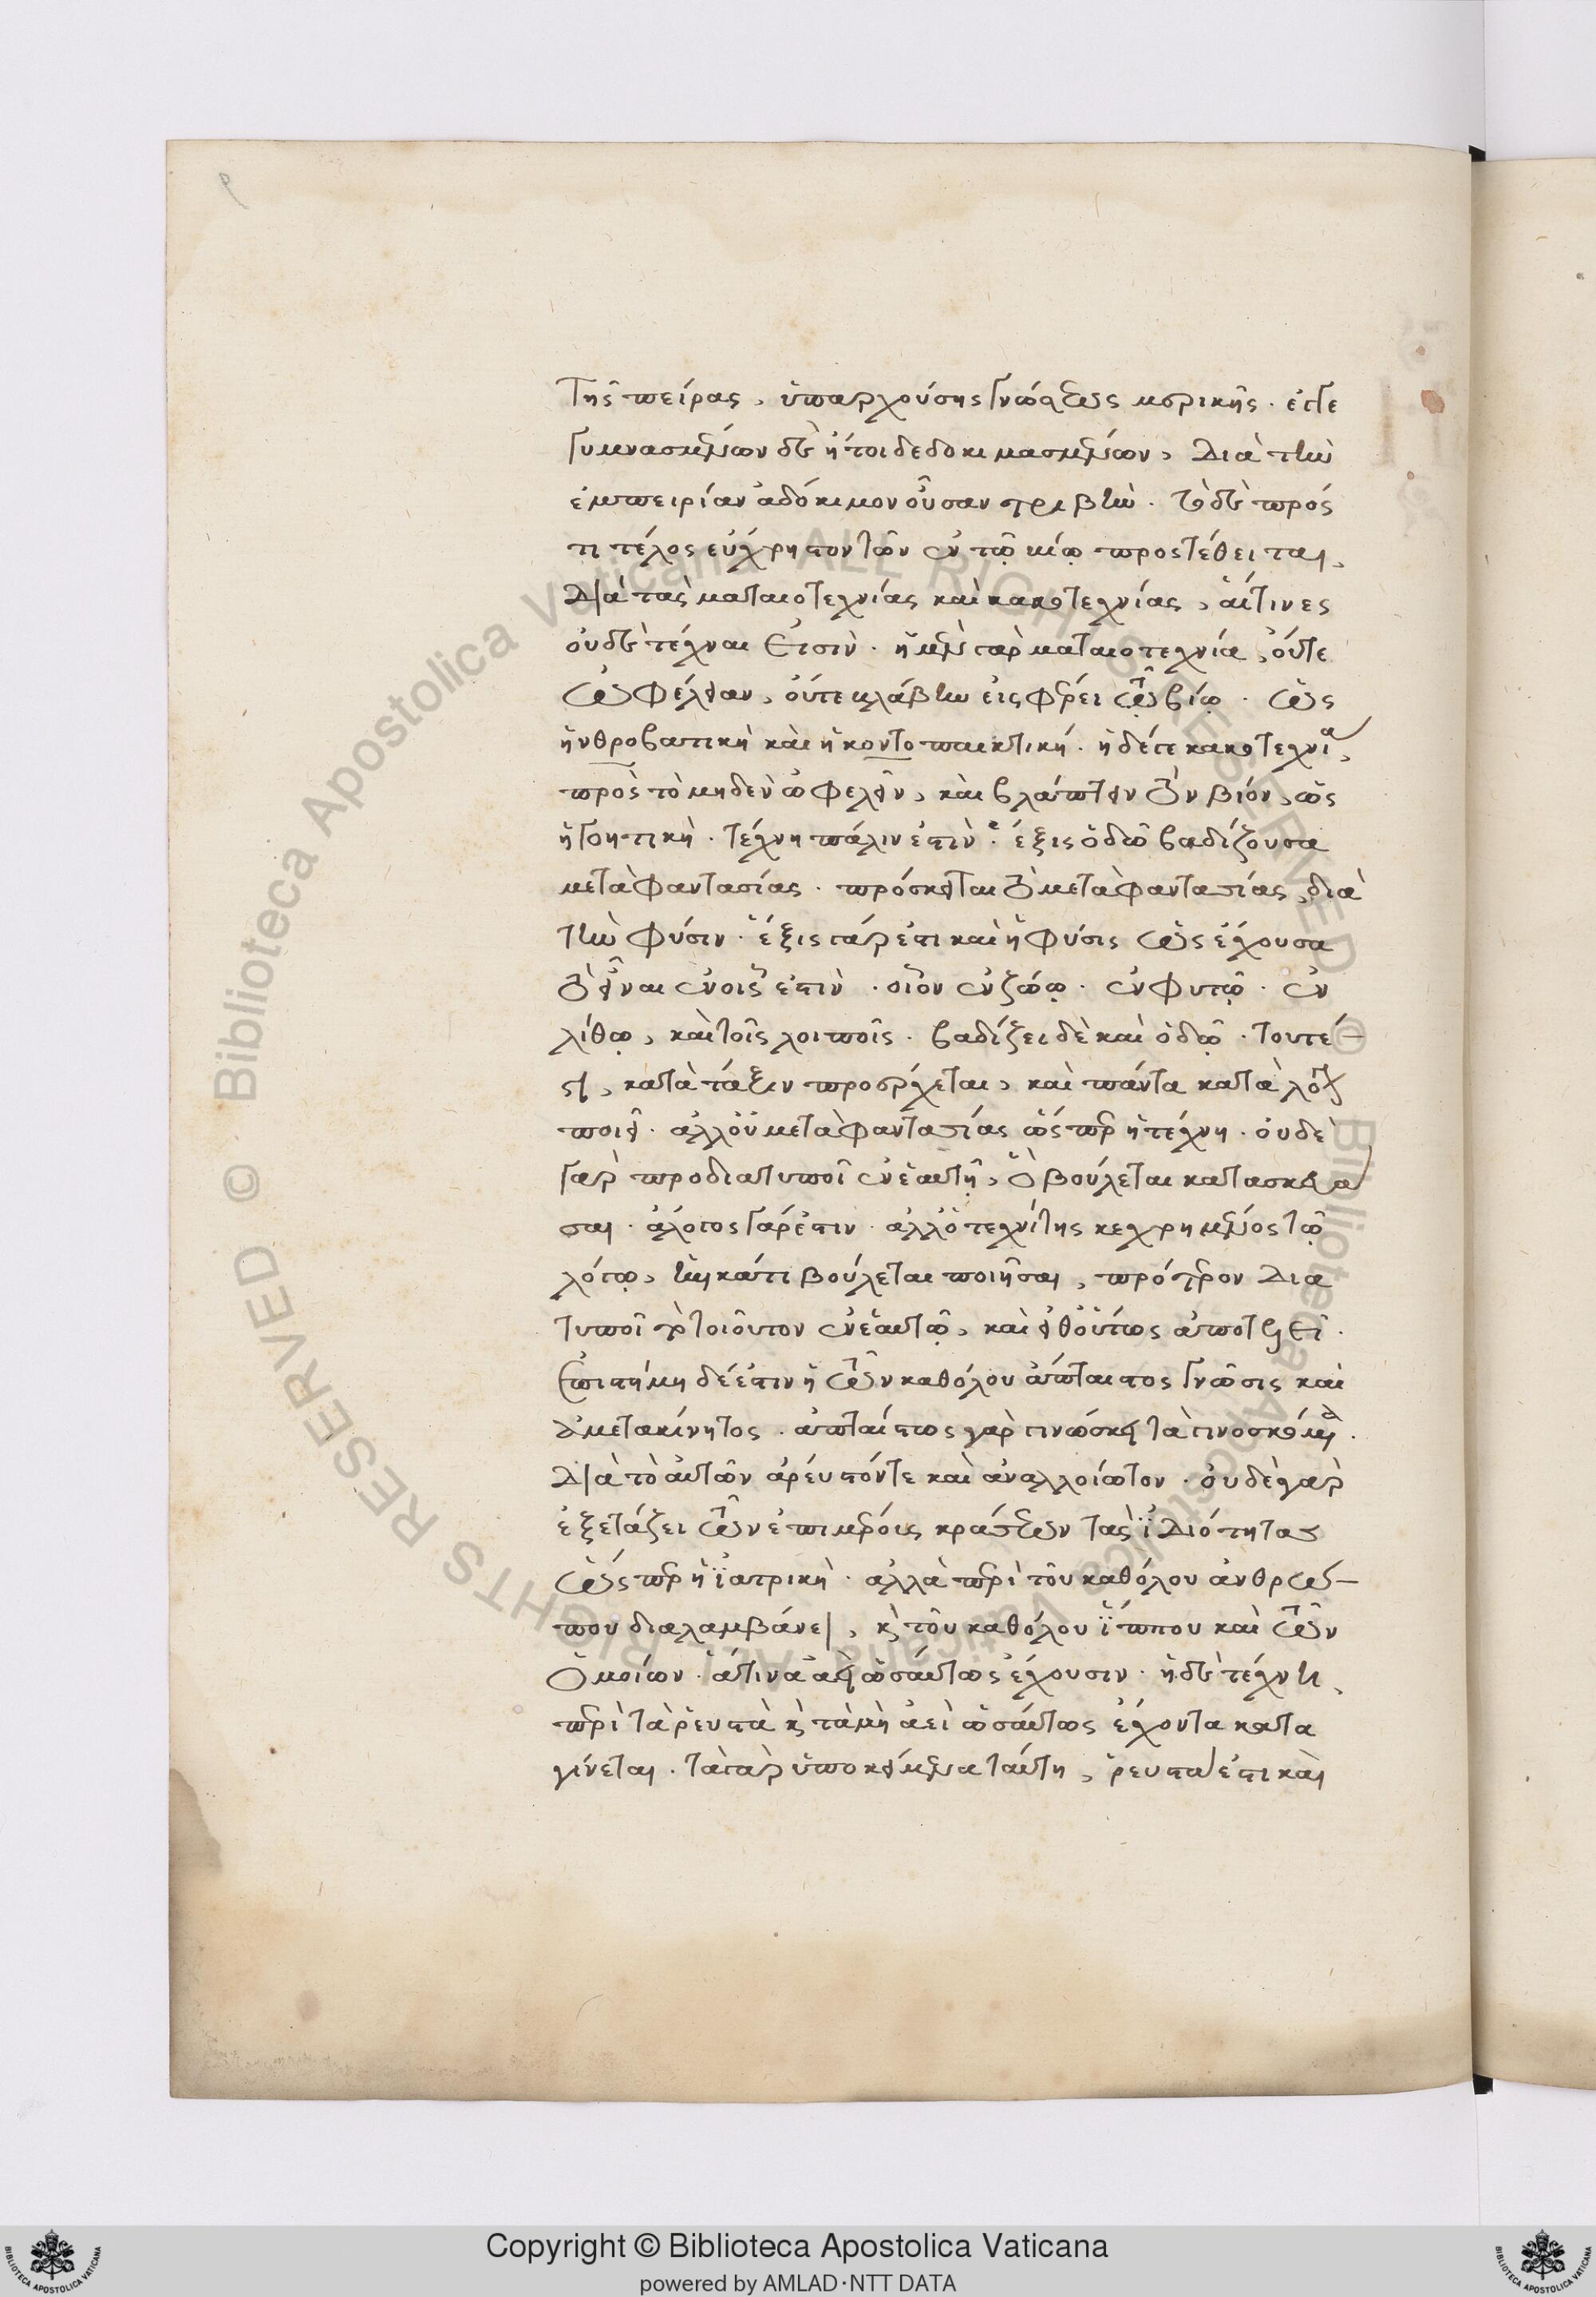 Τῆς πείρας, ὑπαρχούσης γνώσεως μερικῆς. ἔτε
γυμνασμένων δὲ ἤτοι δεδοκιμασμένων, Διὰ τὴν
ἐμπειρίαν ἀδόκιμον οὖσαν τριβὴν. τὸ δὲ πρός
τι τέλος εὐχρηστον τῶν ἐν τῷ βίῳ προστέθειται,
Διὰ τὰς ματαιοτεχνίας καὶ κακοτεχνίας, αἵτινες
οὐδὲ τέχναι εἰσιν. ἡ μὲν γὰρ ματαιοτεχνία, οὔτε
ὠφέλειαν, οὔτε βλάβην εἰσφέρει τῷ βίῳ. ὡς
ἡ νθροβατικὴ καὶ ἡ κοντοπαικτική. ἡ δέ γε κακοτεχνία,
πρὸς τὸ μηδὲν ὠφελεῖν, καὶ βλάπτειν τὸν βίον, ὡς
ἡ γοητικὴ. τέχνη πάλιν ἐστὶν. ἕξις ὁδῷ βαδίζουσα
μετὰ φαντασίας. πρόσκειται τὸ μετὰ φαντασίας, διὰ
τὴν φύσιν. ἕξις γάρ ἐστι καὶ ἡ φύσις ὡς ἔχουσα
τὸ εἶναι ἐν οἷς ἐστὶν. οἷον ἐν ζώῳ. ἐν φυτῷ. ἐν
λίθῳ, καὶ τοῖς λοιποῖς. βαδίζει δὲ καὶ ὁδῷ. τουτέ-
στι, κατὰ τάξιν προσέρχεται, καὶ πάντα κατὰ λόγον
ποιεῖ. ἀλλ' οὐ μετὰ φαντασίας ὥσπερ ἡ τέχνη. οὐδὲ
γὰρ προδιατυποῖ ἐν ἑαυτῇ, ὃ βούλεται κατασκευα
σαι. ἄλογος γάρ ἐστιν. ἀλλ' ὁ τεχνίτης κεχρημένος τῷ
λόγῳ, ἡνίκα τι βούλεται ποιῆσαι, πρότερον Δια
τυποῖ τὸ τοιοῦτον ἐν ἑαυτῷ, καὶ εἶθ' οὕτως ἀποτελεῖ.
Ἐπιστήμη δέ ἐστιν ἡ τῶν καθόλου ἄπταιστος γνῶσις καὶ
ἀμετακίνητος. ἀπταίστως γὰρ γινώσκει τὰ γινοσκόμενα.
Διὰ τὸ αὐτῶν ἀρέυστόν τε καὶ ἀναλλοίωτον. οὐδὲ γὰρ
ἐξετάζει τῶν ἐπιμέροις κράσεων τὰς ἰδιότητας
ὥσπερ ἡ ἰατρικὴ. ἀλλὰ περὶ τοῦ καθόλου ἀνθρώ-
που διαλαμβάνει, καὶ τοῦ καθόλου ἵππου καὶ τῶν
ὁμοίων. ἅτινα ἀεὶ ὡσαύτως ἔχουσιν. ἡ δὲ τέχνη,
περὶ τὰ ῥευστὰ καὶ τὰ μὴ ἀεὶ ὡσαύτως ἔχοντα κατα
γίνεται. τὰ γὰρ ὑποκείμενα ταύτη, ῥευστά ἐστι καὶ
Copyright © Biblioteca Apostolica Vaticana
powered by AMLAD·NTT DATA